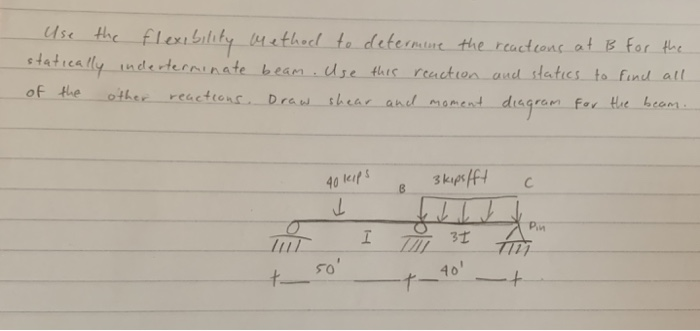 Use the flexibility method to determine the reactions at B for the
statically indeterminate beam. Use this reaction and statics to find all
of the other reactions. Draw shear and moment diagram for the beam.
40 kips B 3 kips/ft C
Pin
I 3I
50' 40'